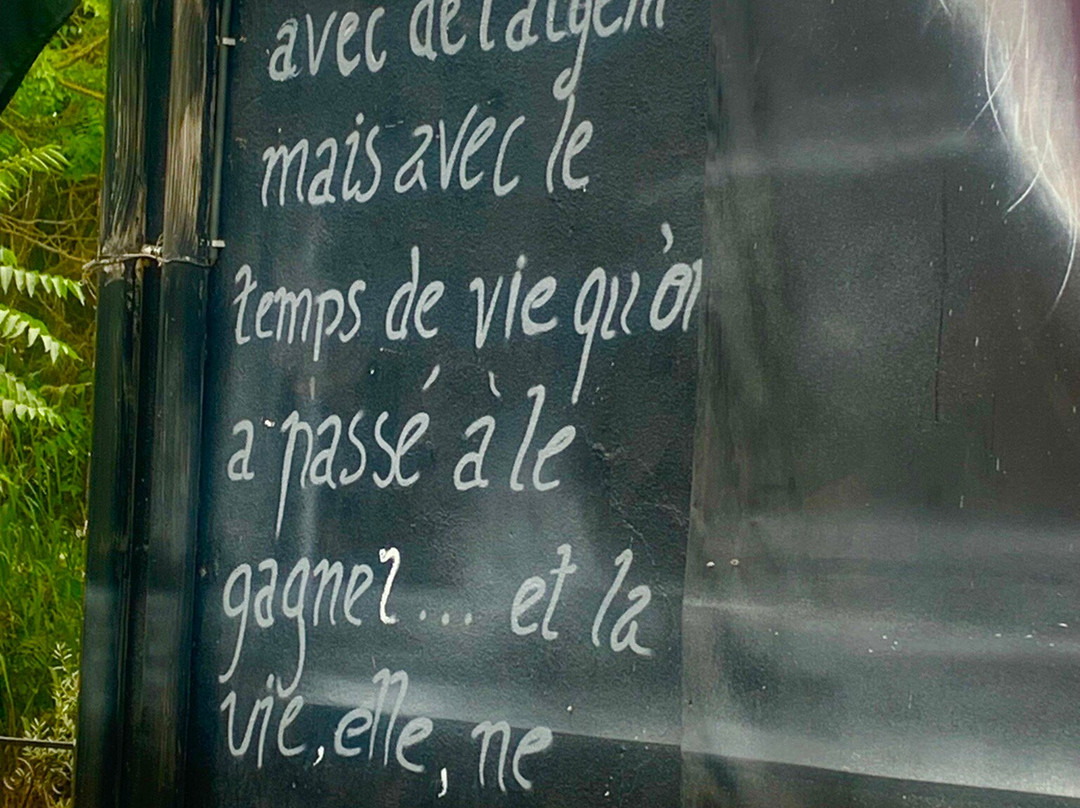 avec de l'argent
mais avec le
temps de vie qu'on
a passé à le
gagner... et la
vie, elle, ne